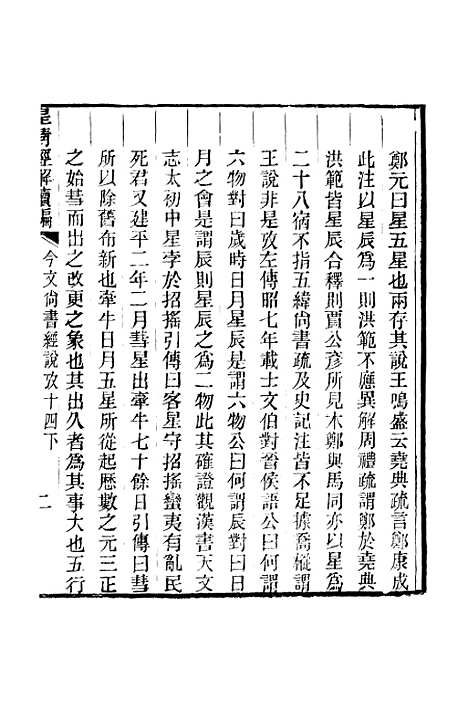 鄭元曰星五星也兩存其說王鳴盛云堯典疏言鄭康成
此注以星辰爲一則洪範不應異解周禮疏謂鄭於堯典
洪範皆星辰合釋則賈公彥所見本鄭與馬同亦以星爲
二十八宿不指五緯尙書疏及史記注皆不足據喬樅謂
王說非是攷左傳昭七年載士文伯對晉侯語公曰何謂
六物對曰歲時日月星辰是謂六物公曰何謂辰對曰日
月之會是謂辰則星辰之爲二物此其確證觀漢書天文
志太初中星孛於招搖引傳曰客星守招搖蠻夷有亂民
死君又建平二年二月彗星出牽牛七十餘日引傳曰彗
所以除舊布新也牽牛日月五星所從起歷數之元三正
之始彗而出之改更之象也其出久者爲其事大也五行
皇淸經解續編
今文尙書經說攷十四下
二